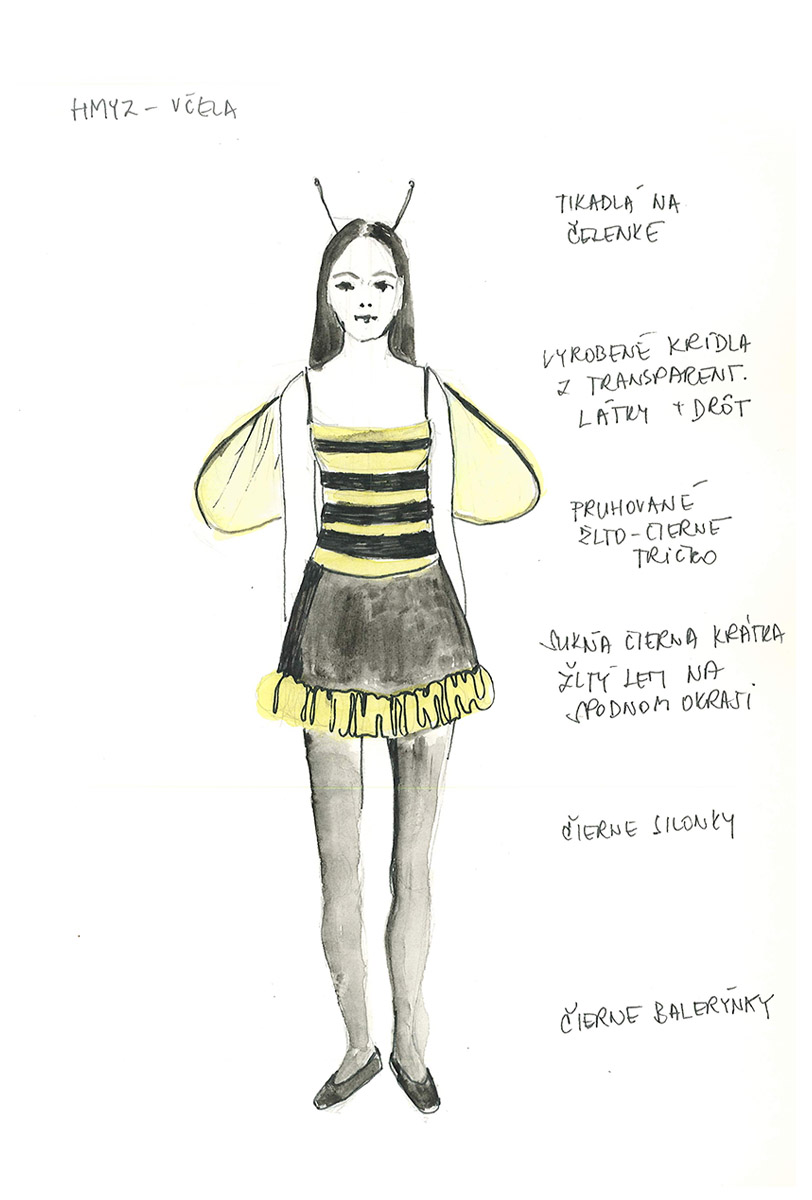 HMYZ – VČELA
TIKADLÁ NA
ČELENKE
VYROBENÉ KRÍDLA
Z TRANSPARENT.
LÁTKY + DRÔT
PRUHOVANÉ
ŽLTO-ČIERNE
TRIČKO
SUKŇA ČIERNA KRÁTKA
ŽLTÝ LEM NA
SPODNOM OKRAJI
ČIERNE SILONKY
ČIERNE BALERÝNKY